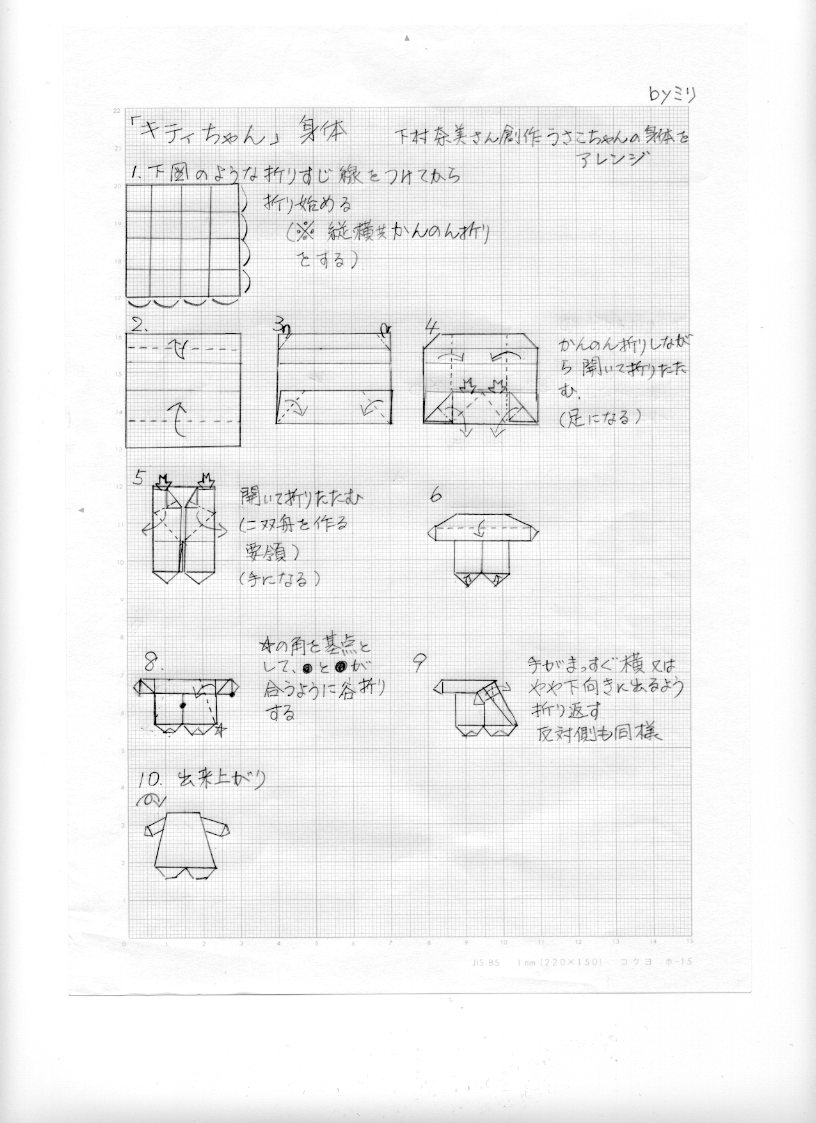 byミリ
「キティちゃん」身体
下村奈美さん創作うさこちゃんの身体を
アレンジ
1.下図のような折りすじ線をつけてから
折り始める
(※ 縦横共かんのん折り
をする)
2.
3
4
かんのん折りしなが
ら開いて折りたた
む.
(足になる)
5
開いて折りたたむ
(二双舟を作る
要領)
(手になる)
6
8.
☆の角を基点と
して、●と●が
合うように谷折り
する
☆
9
手がまっすぐ横又は
やや下向きに出るよう
折り返す
反対側も同様
10. 出来上がり
22
21
17
16
15
14
13
12
11
10
9
8
7
6
5
4
3
2
1
0 1 2 3 4 5 6 7 8 9 10 11 12 13 14 15
JIS B5 1mm(220×150) コクヨ ホ-15